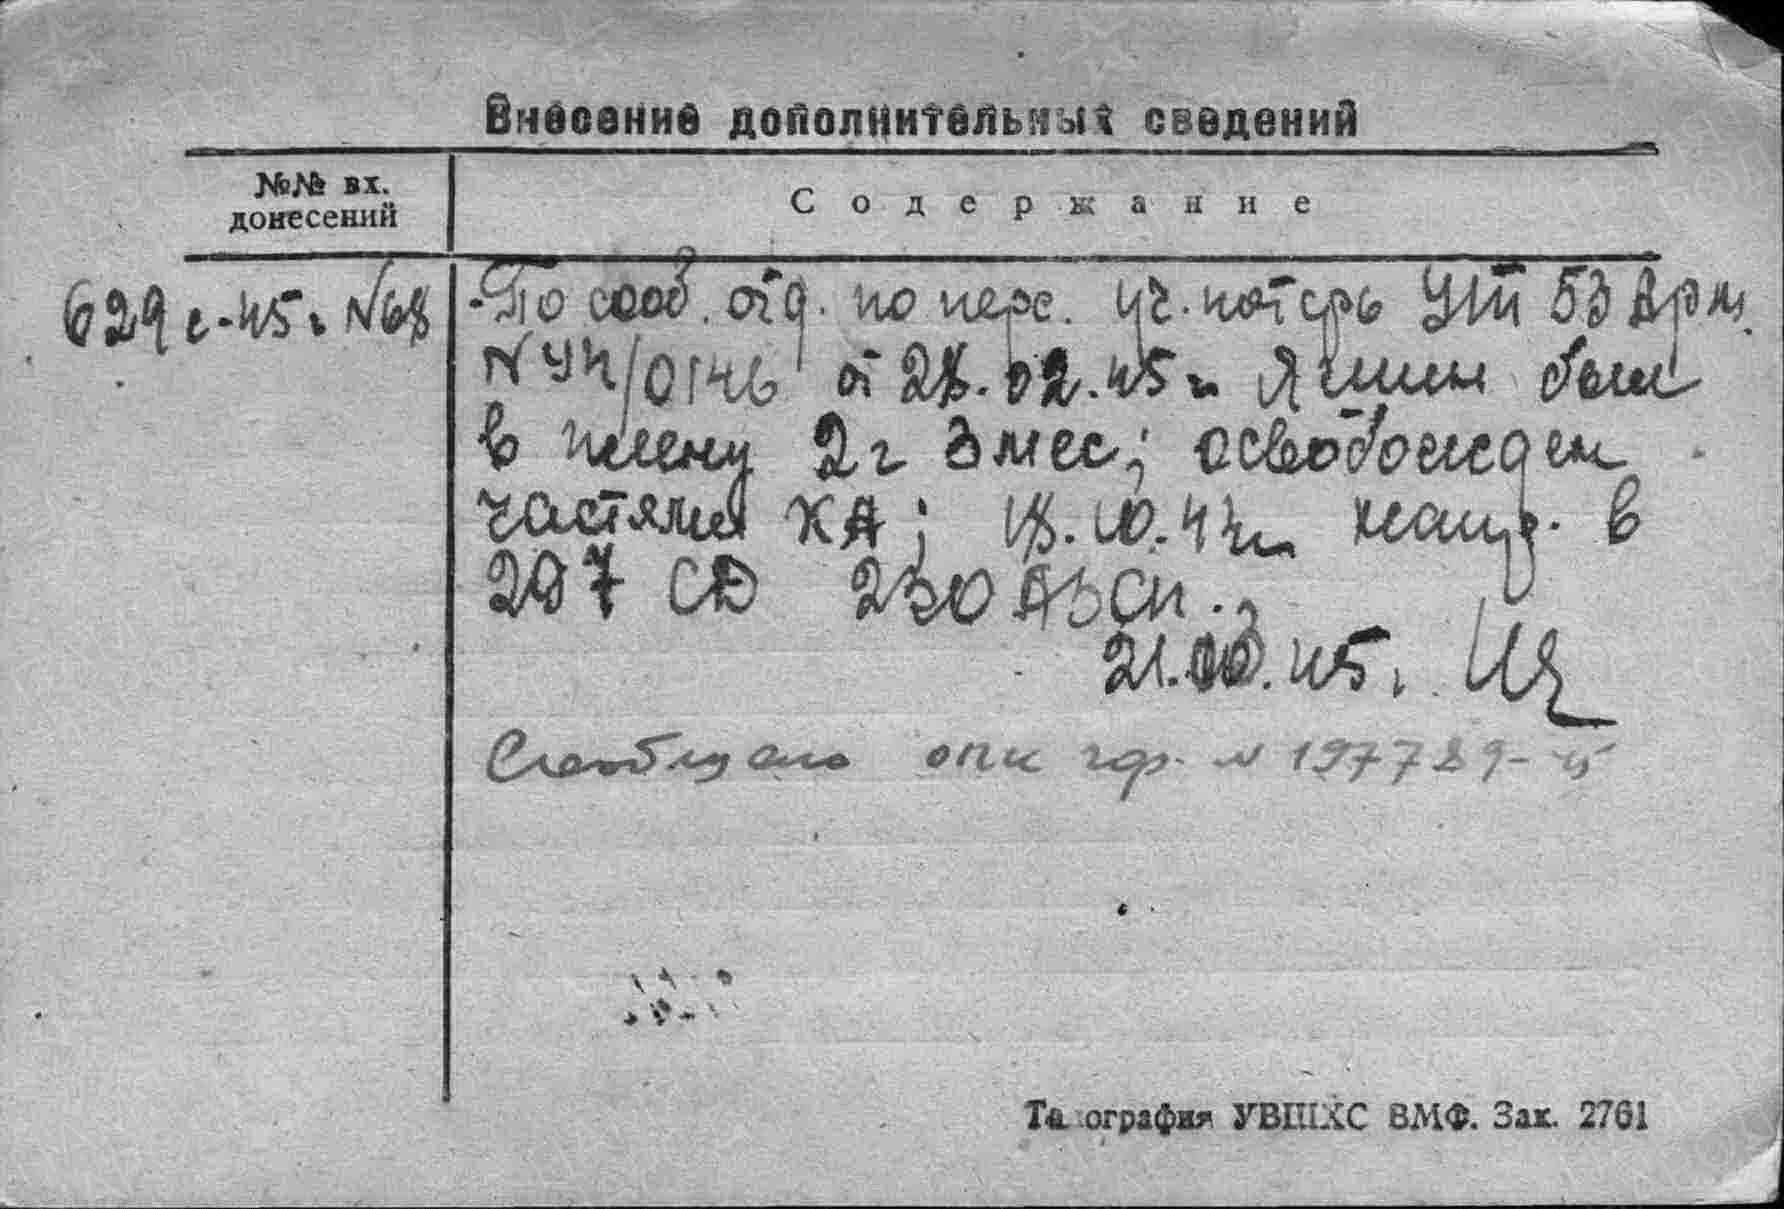 Внесение дополнительных сведений
№№ вх.
донесений
Содержание
629с-45г №68
-По сооб. отд. по перс. уч. потерь УТТ 53 Арм.
N УН/0146 от 28.02.45г. был
в плену 2г 3 мес; освобожден
частями КА; 18.10.44г. напр. в
297 СД 230 АЗСП.
21. .45г.
Сообщено гр. N 197789-45
Типография УВПХС ВМФ. Зак. 2761